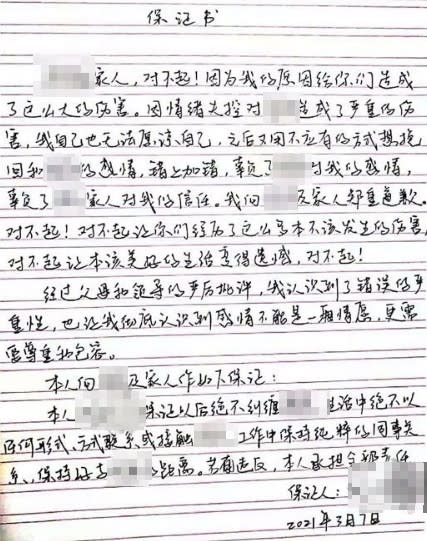 保证书
家人，对不起！因为我的原因给你们造成
了这么大的伤害。因情绪失控对 造成了严重的伤
害，我自己也无法原谅自己，之后又用不应有的方式想挽
回和 的感情，错上加错，辜负了 对我的感情，
辜负了 家人对我的信任。我向 及家人郑重道歉。
对不起！对不起让你们经历了这么多本不该发生的伤害，
对不起让本该美好的生活变得遗憾，对不起！
经过父母和领导的严厉批评，我认识到了错误的严
重性，也让我彻底认识到感情不能是一厢情愿，更需
要尊重和包容。
本人向 及家人作如下保证：
本人 保证以后绝不纠缠 生活中绝不以
任何形式、方式联系或接触 工作中保持纯粹的同事关
系、保持好与 距离。若有违反，本人承担全部责任
保证人：
2021年3月7日